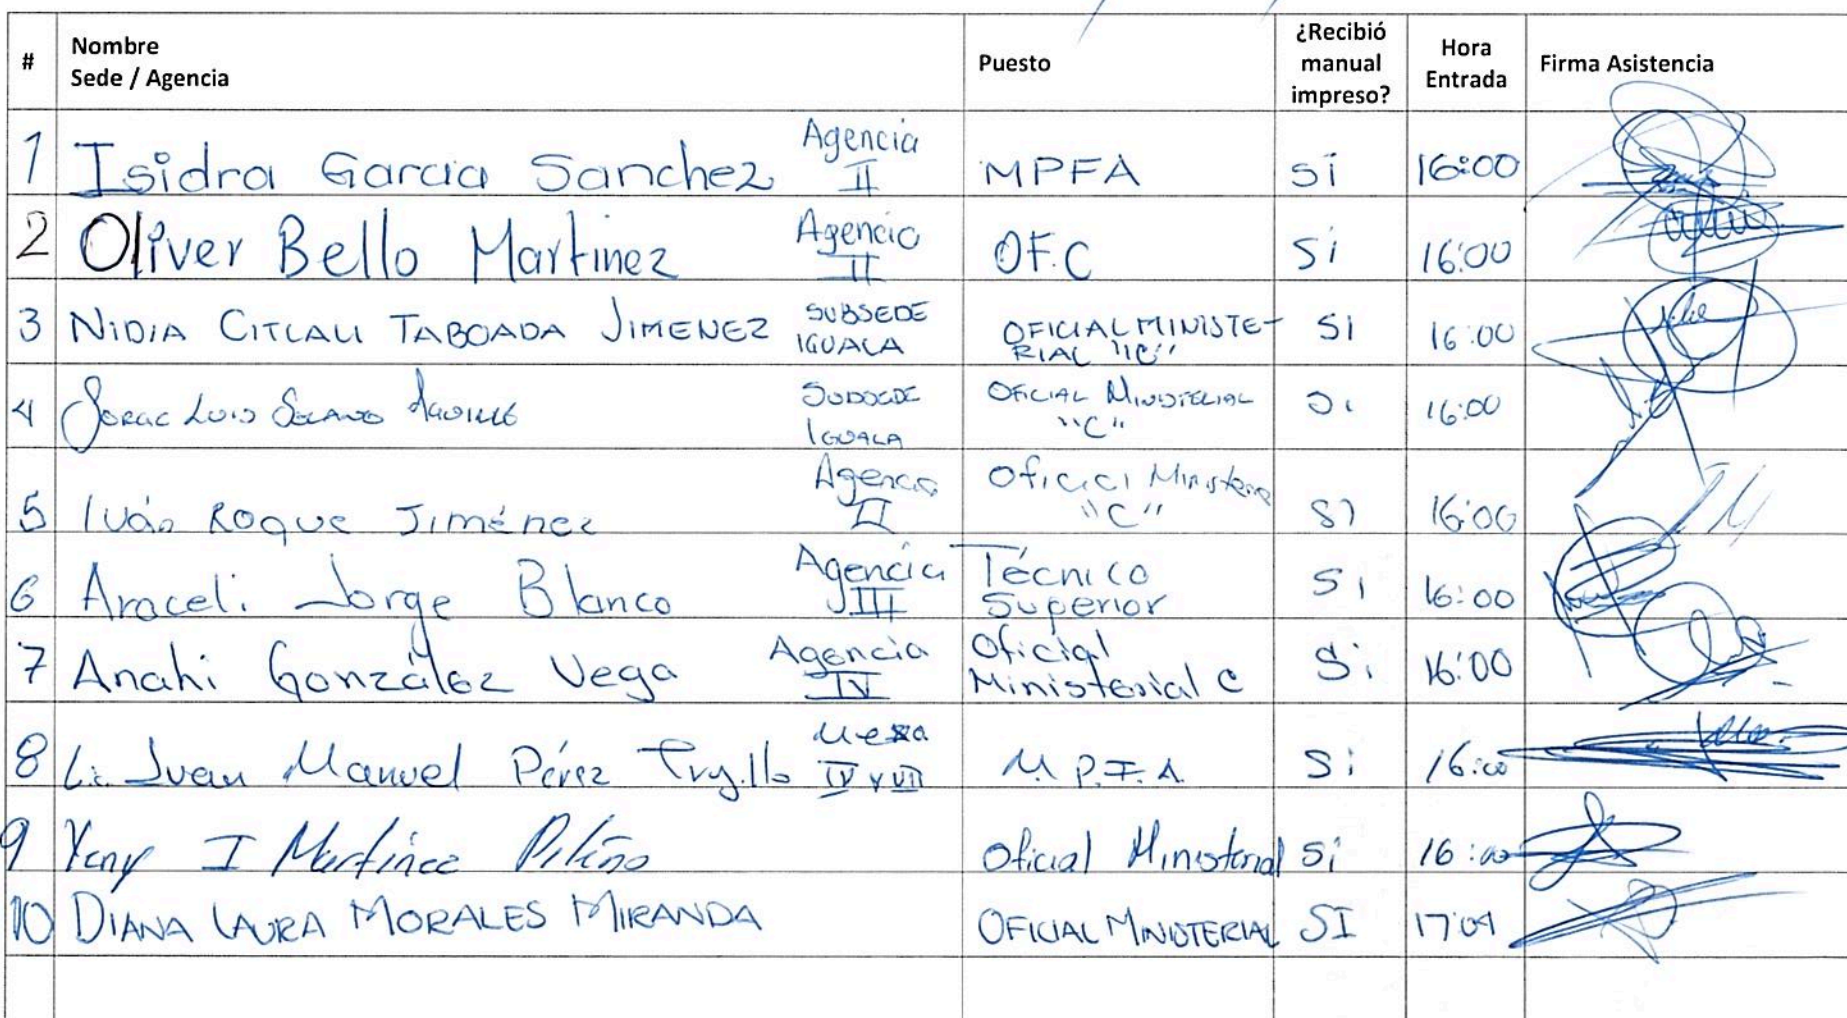 # Nombre Sede / Agencia Puesto ¿Recibió manual impreso? Hora Entrada Firma Asistencia
1 Isidra Garcia Sanchez Agencia II MPFA sí 16:00
2 Oliver Bello Martinez Agencia II OF.C Sí 16:00
3 NIDIA CITLALI TABOADA JIMENEZ SUBSEDE IGUALA OFICIAL MINISTE- RIAL "C" SI 16:00
4 JORGE LUIS SUBSEDE IGUALA OFICIAL MINISTERIAL "C" Si 16:00
5 Iván Roque Jiménez Agencia II Oficial "C" SI 16:00
6 Araceli Jorge Blanco Agencia III Técnico Superior Si 16:00
7 Anahi González Vega Agencia IV Oficial Ministerial C Si 16:00
8 Lic. Juan Manuel Pérez Trujillo Mesa IV y VII M.P.F.A. Si 16:00
9 Yeny I Martínez Oficial Ministerial Sí 16:00
10 DIANA LAURA MORALES MIRANDA OFICIAL MINISTERIAL SI 17:09